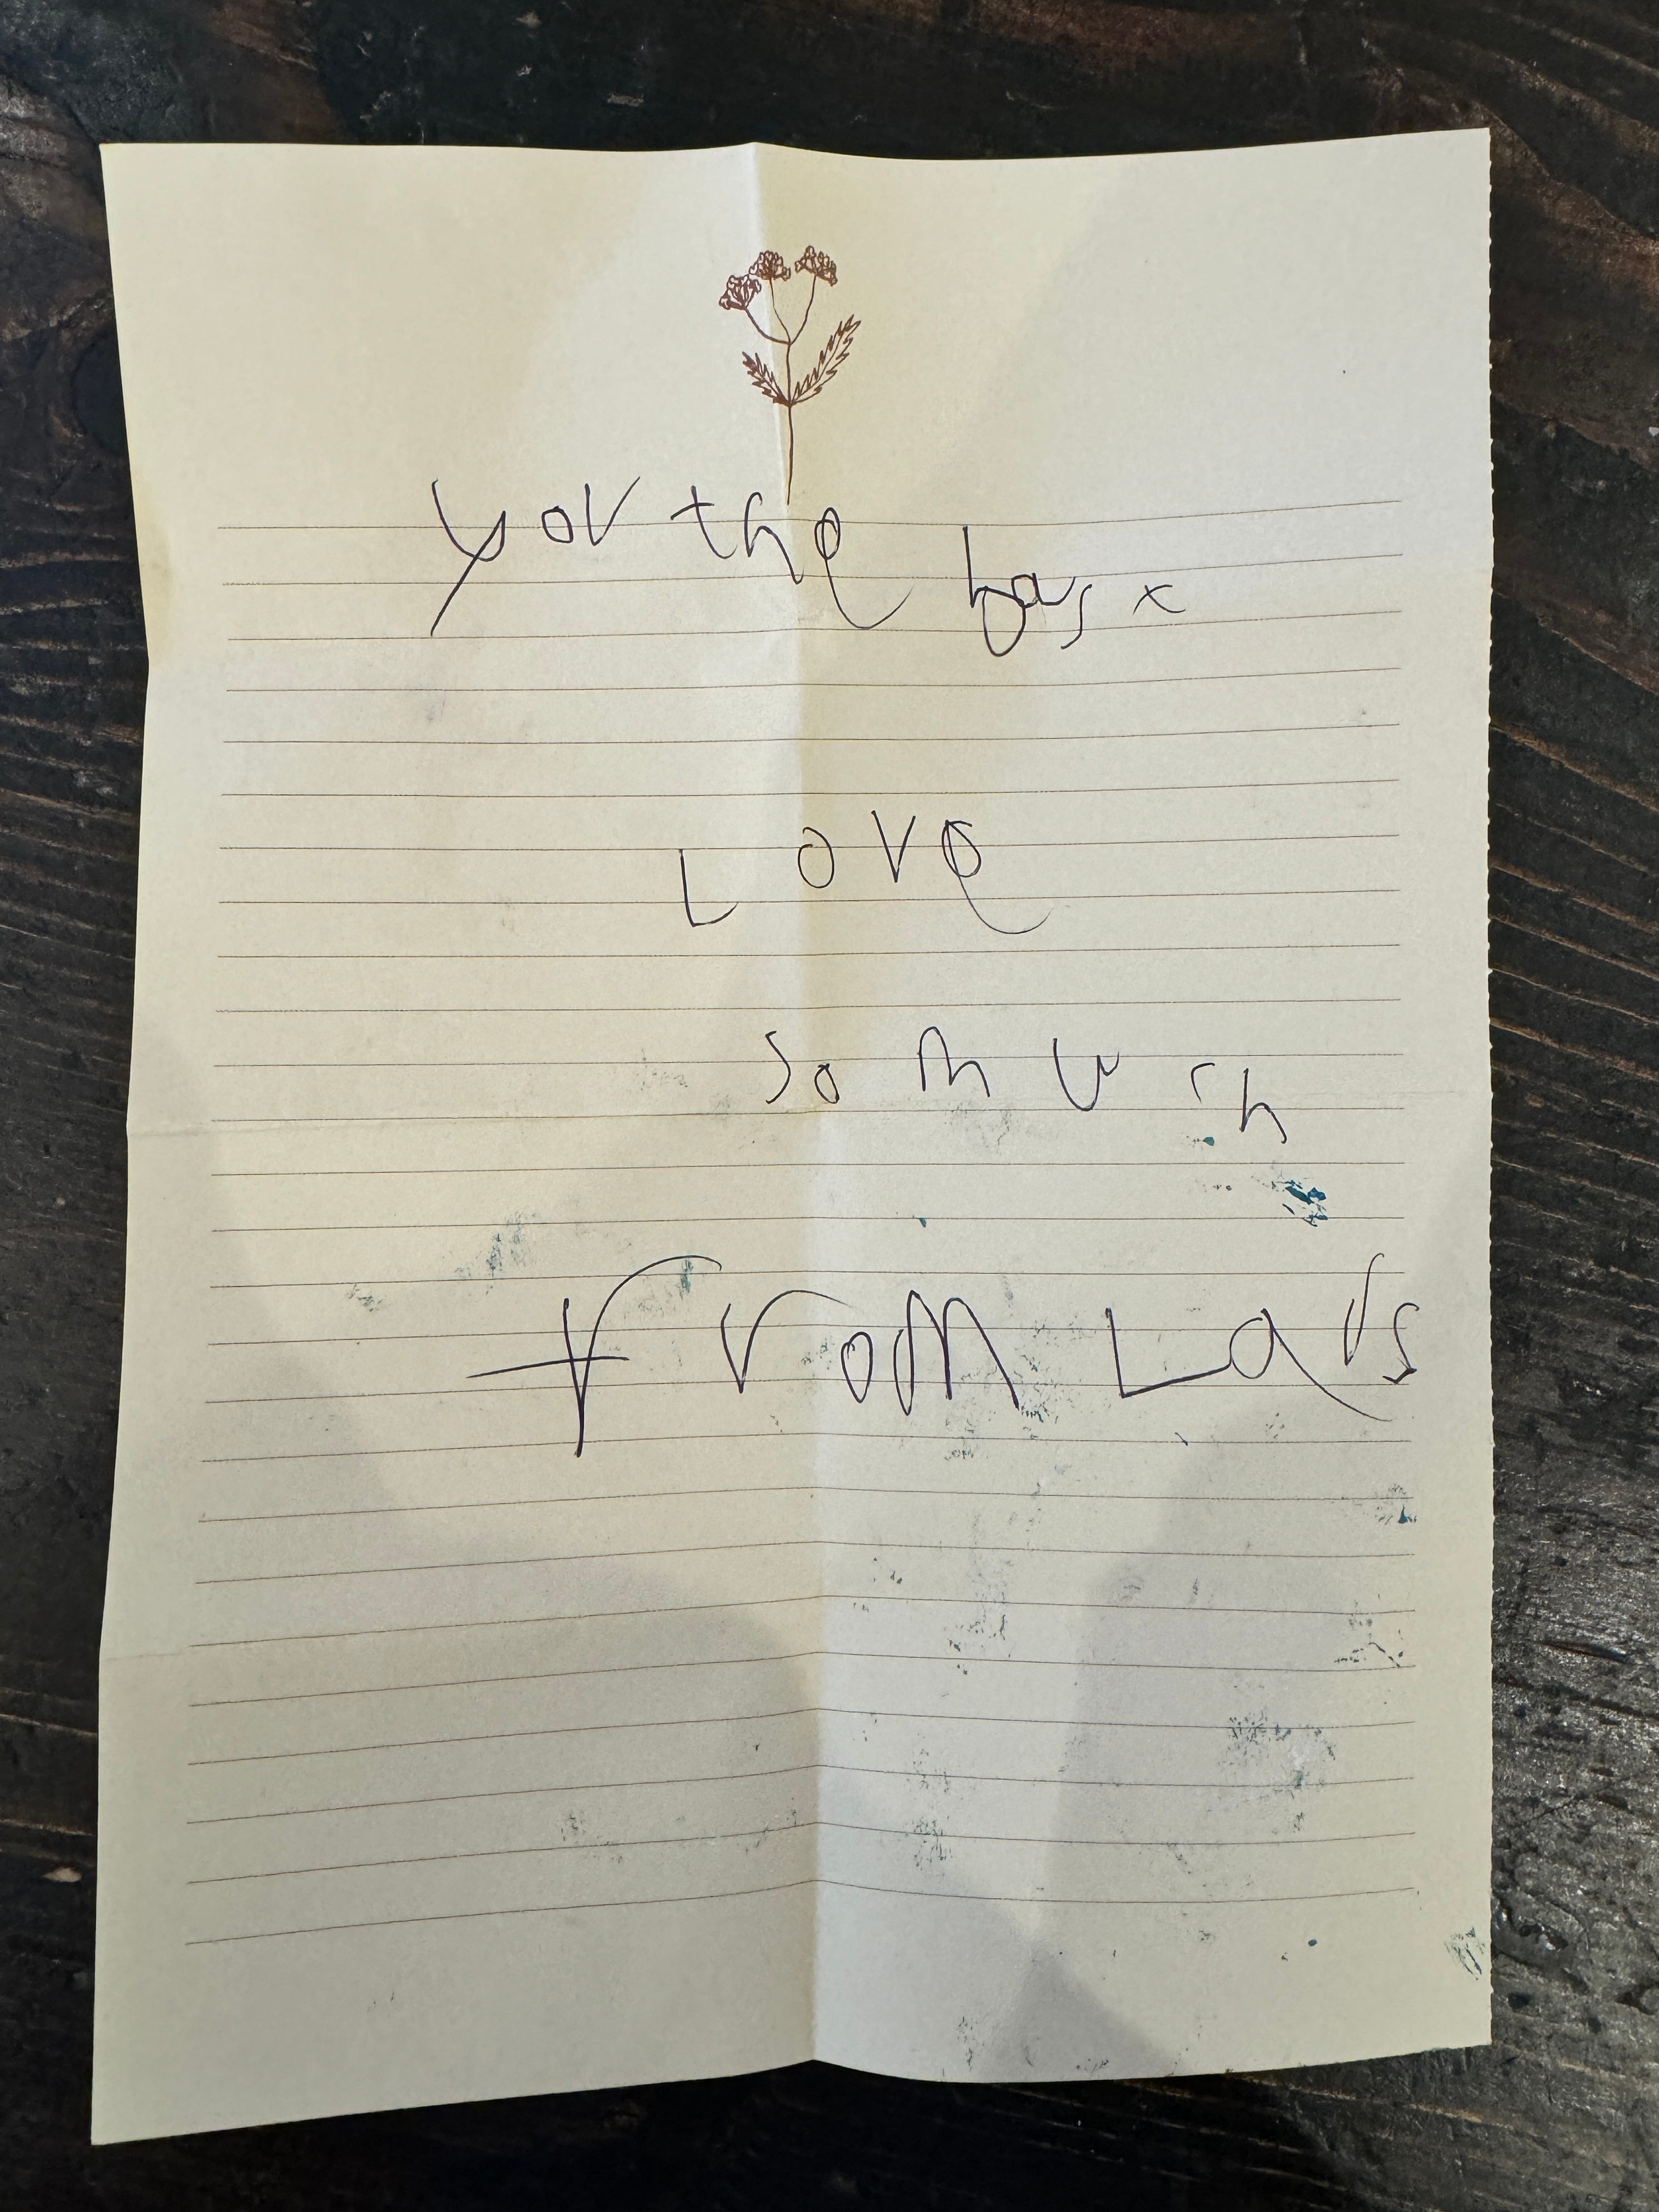 you the bast
Love
so much
from Lars